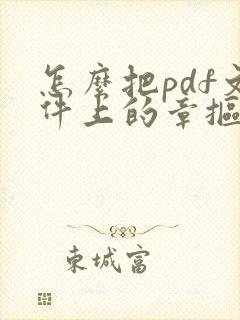 怎麽把pdf文
件上的章摳
東城富